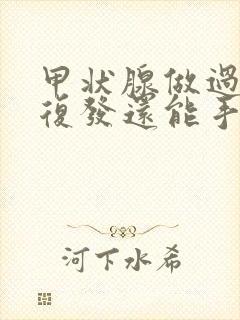 甲状腺做過
復發還能手
河下水希